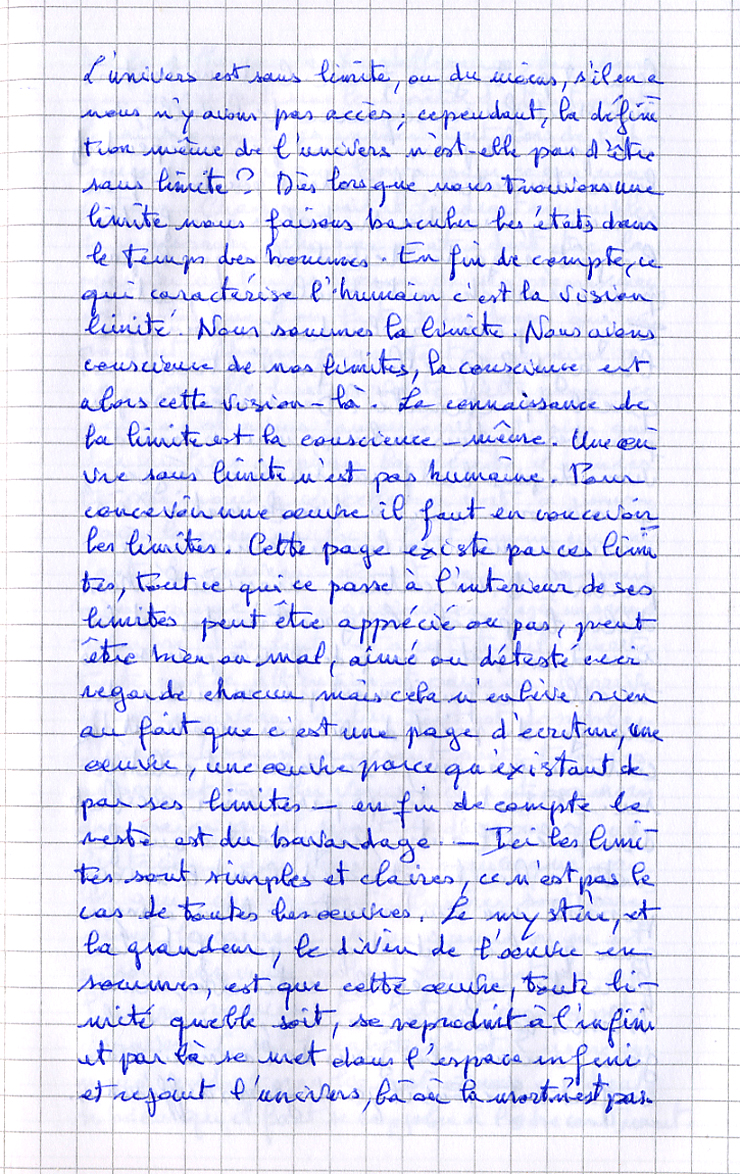 L'univers est sans limite, ou du moins, s'il en a
nous n'y avons pas accès; cependant, la défini
tion même de l'univers n'est-elle pas d'être
sans limite? Dès lors que nous trouvons une
limite nous faisons basculer les états dans
le temps des hommes. En fin de compte, ce
qui caractérise l'humain c'est la vision
limité. Nous sommes la limite. Nous avons
conscience de nos limites, la conscience est
alors cette vision-là. La connaissance de
la limite est la conscience-même. Une œu
vre sans limite n'est pas humaine. Pour
concevoir une œuvre il faut en concevoir
les limites. Cette page existe par ces limi
tes, tout ce qui ce passe à l'interieur de ses
limites peut être apprécié ou pas, peut
être bien ou mal, aimé ou détesté ceci
regarde chacun mais cela n'enlève rien
au fait que c'est une page d'écriture, une
œuvre, une œuvre parce qu'existant de
par ses limites — en fin de compte le
reste est du bavardage. — Ici les limi
tes sont simples et claires, ce n'est pas le
cas de toutes les œuvres. Le mystère, et
la grandeur, le divin de l'œuvre en
sommes, est que cette œuvre, toute li-
mité quelle soit, se reproduit à l'infini
et par là se met dans l'espace infini
et rejoint l'univers, là où la mort n'est pas.